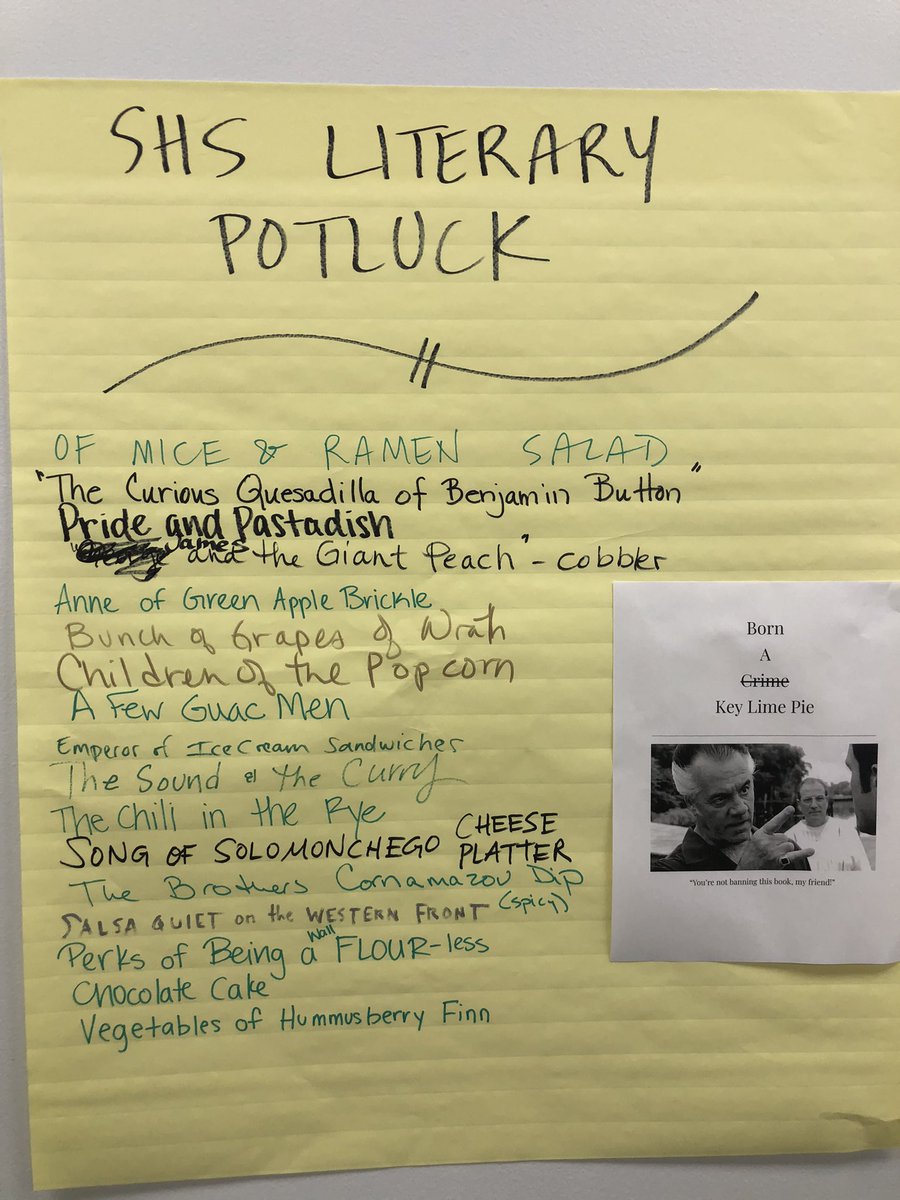 SHS LITERARY
POTLUCK
OF MICE & RAMEN SALAD
"The Curious Quesadilla of Benjamin Button"
Pride and Pastadish
"James and the Giant Peach" - cobbler
Anne of Green Apple Brickle
Bunch of Grapes of Wrath
Children of the Popcorn
A Few Guac Men
Emperor of Ice Cream Sandwiches
The Sound of the Curry
The Chili in the Rye
SONG OF SOLOMONCHEGO CHEESE
PLATTER
The Brothers Cornamazov Dip
SALSA QUIET on the WESTERN FRONT (spicy)
Perks of Being a Wall FLOUR-less
Chocolate Cake
Vegetables of Hummusberry Finn
Born
A
Crime
Key Lime Pie
"You're not banning this book, my friend!"